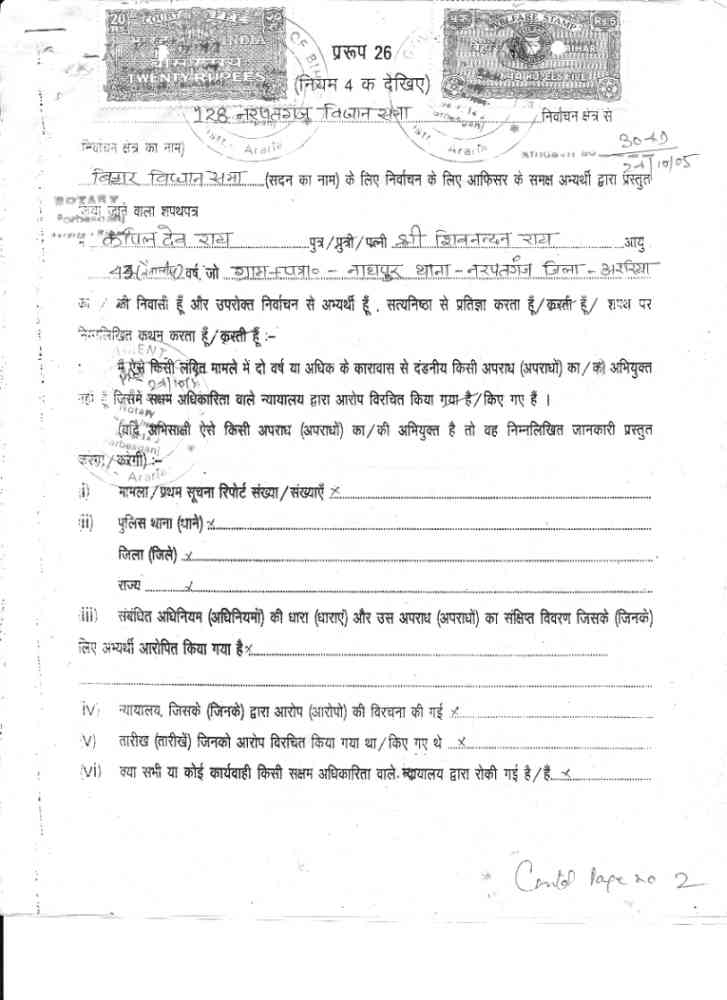 20 COURT FEE 20
INDIA
TWENTY RUPEES
WELFARE STAMP
Rs 5
बिहार BIHAR
RUPEES FIVE
प्ररूप 26
(नियम 4 क देखिए)
128 नरपतगंज विधान सभा निर्वाचन क्षेत्र से
निर्वाचन क्षेत्र का नाम)
Araria
Araria
24/10/05
बिहार विधान सभा (सदन का नाम) के लिए निर्वाचन के लिए आफिसर के समक्ष अभ्यर्थी द्वारा प्रस्तुत
NOTARY
किया जाने वाला शपथपत्र
कपिल देव राय पुत्र/पुत्री/पत्नी श्री शिवनन्दन राय आयु
वर्ष, जो नाथपुर थाना - नरपतगंज जिला - अररिया
का / की निवासी हूँ और उपरोक्त निर्वाचन से अभ्यर्थी हूँ , सत्यनिष्ठा से प्रतिज्ञा करता हूँ/करती हूँ/ शपथ पर
निम्नलिखित कथन करता हूँ/करती हूँ :–
मैं ऐसे किसी लंबित मामले में दो वर्ष या अधिक के कारावास से दंडनीय किसी अपराध (अपराधों) का/की अभियुक्त
नहीं हूँ जिसमें सक्षम अधिकारिता वाले न्यायालय द्वारा आरोप विरचित किया गया है/किए गए हैं ।
Notary
(यदि अभिसाक्षी ऐसे किसी अपराध (अपराधों) का/की अभियुक्त है तो वह निम्नलिखित जानकारी प्रस्तुत
करेगा/करेगी) :–
Araria
i) मामला/प्रथम सूचना रिपोर्ट संख्या/संख्याएँ ×
ii) पुलिस थाना (थाने) ×
जिला (जिले) ×
राज्य ×
iii) संबंधित अधिनियम (अधिनियमों) की धारा (धाराएं) और उस अपराध (अपराधों) का संक्षिप्त विवरण जिसके (जिनके)
लिए अभ्यर्थी आरोपित किया गया है ×
iv) न्यायालय, जिसके (जिनके) द्वारा आरोप (आरोपो) की विरचना की गई ×
(V) तारीख (तारीखें) जिनको आरोप विरचित किया गया था/किए गए थे ×
(vi) क्या सभी या कोई कार्यवाही किसी सक्षम अधिकारिता वाले न्यायालय द्वारा रोकी गई है/हैं ×
Contd Page no 2